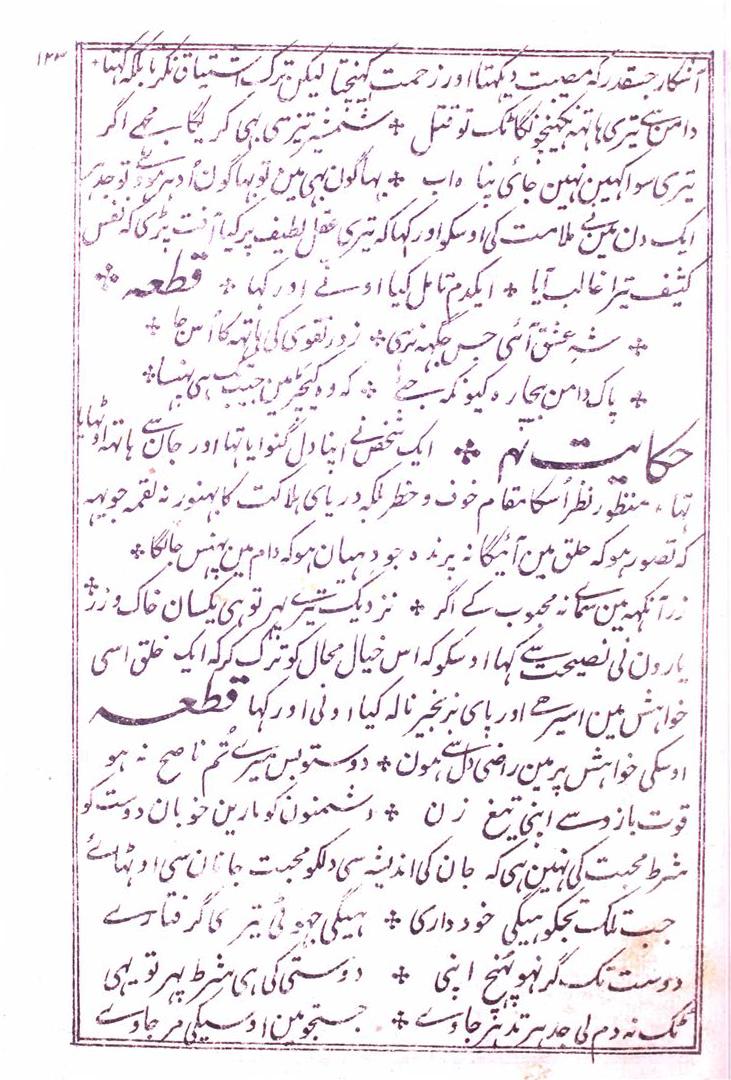 ۱۲۳
آشکار جسقدر کہ مصیبت دیکہتا اور زحمت کہنچتا لیکن ترک اشتیاق نکرتا بلکہ کہتا
دامن سے تیری ہاتہہ نکہینچونگا ٹک تو قتل ٭ شمشیر تیز سی ہی کر لیگا مجہے اگر
تیری سوا کہین نہین جای پناہ اب ٭ بہاگون بہی مین تو بہاگون اُدہر ہووے تو جدہر
ایک دن مین نے ملامت کی اوسکو اور کہا کہ تیری عقل لطیف پر کیا آفت پڑی کہ نفس
کثیف تیرا غالب آیا ٭ ایکدم تامل کیا اوسنے اور کہا ٭ قطعہ ٭
٭ شہِ عشق آئی جس جگہہ نری ٭ زور تقوی کی ہاتہہ کا اُس جا ٭
٭ پاک دامن بچارہ کیونکہ جئے ٭ کہ وہ کیچڑ مین جیب تک ہی پہنسا ٭
حکایت نہم ٭ ایک شخص نے اپنا دل گنوایا تہا اور جان سے ہاتہہ اوٹہایا
تہا ٭ منظور نظر اُسکا مقام خوف و خطر بلکہ دریای ہلاکت کا بہنور نہ لقمہ جو یہہ
کہ تصور ہو کہ حلق مین آئیگا نہ پرندہ جو دہیان ہو کہ دام مین پہنس جائگا ٭
زر آنکہہ مین سمائے نہ محبوب کے اگر ٭ نزدیک تیرے پہر تو ہی یکسان خاک و زر ٭
یارون نی نصیحت سے کہا اوسکو کہ اس خیال محال کو ترک کر کہ ایک خلق اسی
خواہش مین اسیر ہے اور پای بزنجیر نالہ کیا اونی اور کہا قطعہ
اوسکی خواہش پر مین راضی دل سے ہون ٭ دوستو بس میرے تُم ناصح نہ ہو
قوت بازو سے اپنی تیغ زن ٭ دشمنون کو مارین خوبان دوست کو
شرط محبت کی نہین ہی کہ جان کی اندیشہ سی دلکو محبت جانان سی اوٹہائے
جب تلک تجکو ہیگی خود داری ٭ ہیگی جہوٹی تیری گرفتارے
دوست تک گر نہو پہنچ اپنی ٭ دوستی کی ہی شرط پہر تو یہی
ٹک نہ دم لی جدہر تدہر جاوے ٭ جستجو مین اوسیکی مر جاوے